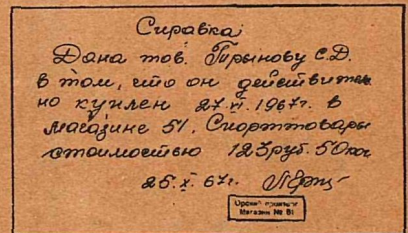 Справка
Дана тов. Тырынову С.Д.
в том, что он действител
но куплен 27.VI.1967г. в
магазине 51. Спорттовары
стоимостью 123руб. 50коп
25.X.67г.
Магазин №